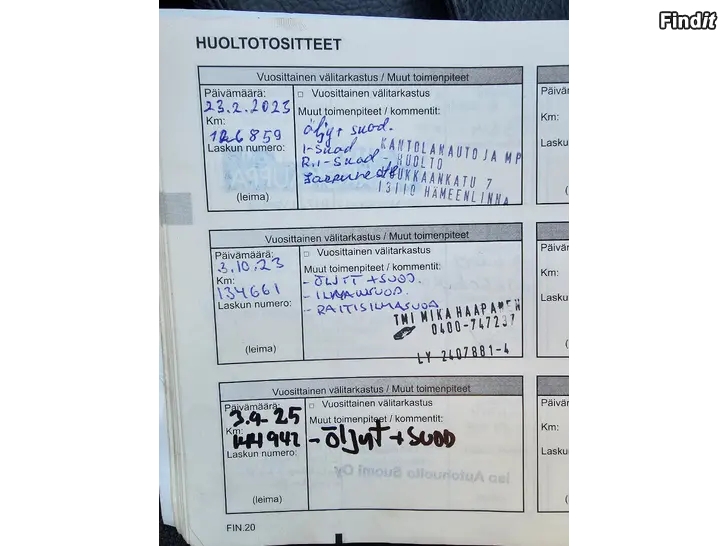 Findit
HUOLTOTOSITTEET
Vuosittainen välitarkastus / Muut toimenpiteet
Päivämäärä:
23.2.2023
Km:
126859
Laskun numero:
(leima)
□ Vuosittainen välitarkastus
Muut toimenpiteet / kommentit:
öljy+ suod.
I-suod
R.I-suod
KANTOLANAUTO JA MP
- HUOLTO
13110 HÄMEENLINNA
Päivä
Km:
Lasku
Vuosittainen välitarkastus / Muut toimenpiteet
Päivämäärä:
3.10.23
Km:
134661
Laskun numero:
(leima)
□ Vuosittainen välitarkastus
Muut toimenpiteet / kommentit:
- ÖLJYT +SUOD.
- ILMANSUOD.
- RAITISILMASUOD
TMI MIKA HAAPANEN
0400-747237
LY 2407881-4
Päivä
Km:
Lasku
Vuosittainen välitarkastus / Muut toimenpiteet
Päivämäärä:
3.9-25
Km:
Laskun numero:
(leima)
□ Vuosittainen välitarkastus
Muut toimenpiteet / kommentit:
- öljyt + SUOD
Päivä
Km:
Lasku
FIN.20